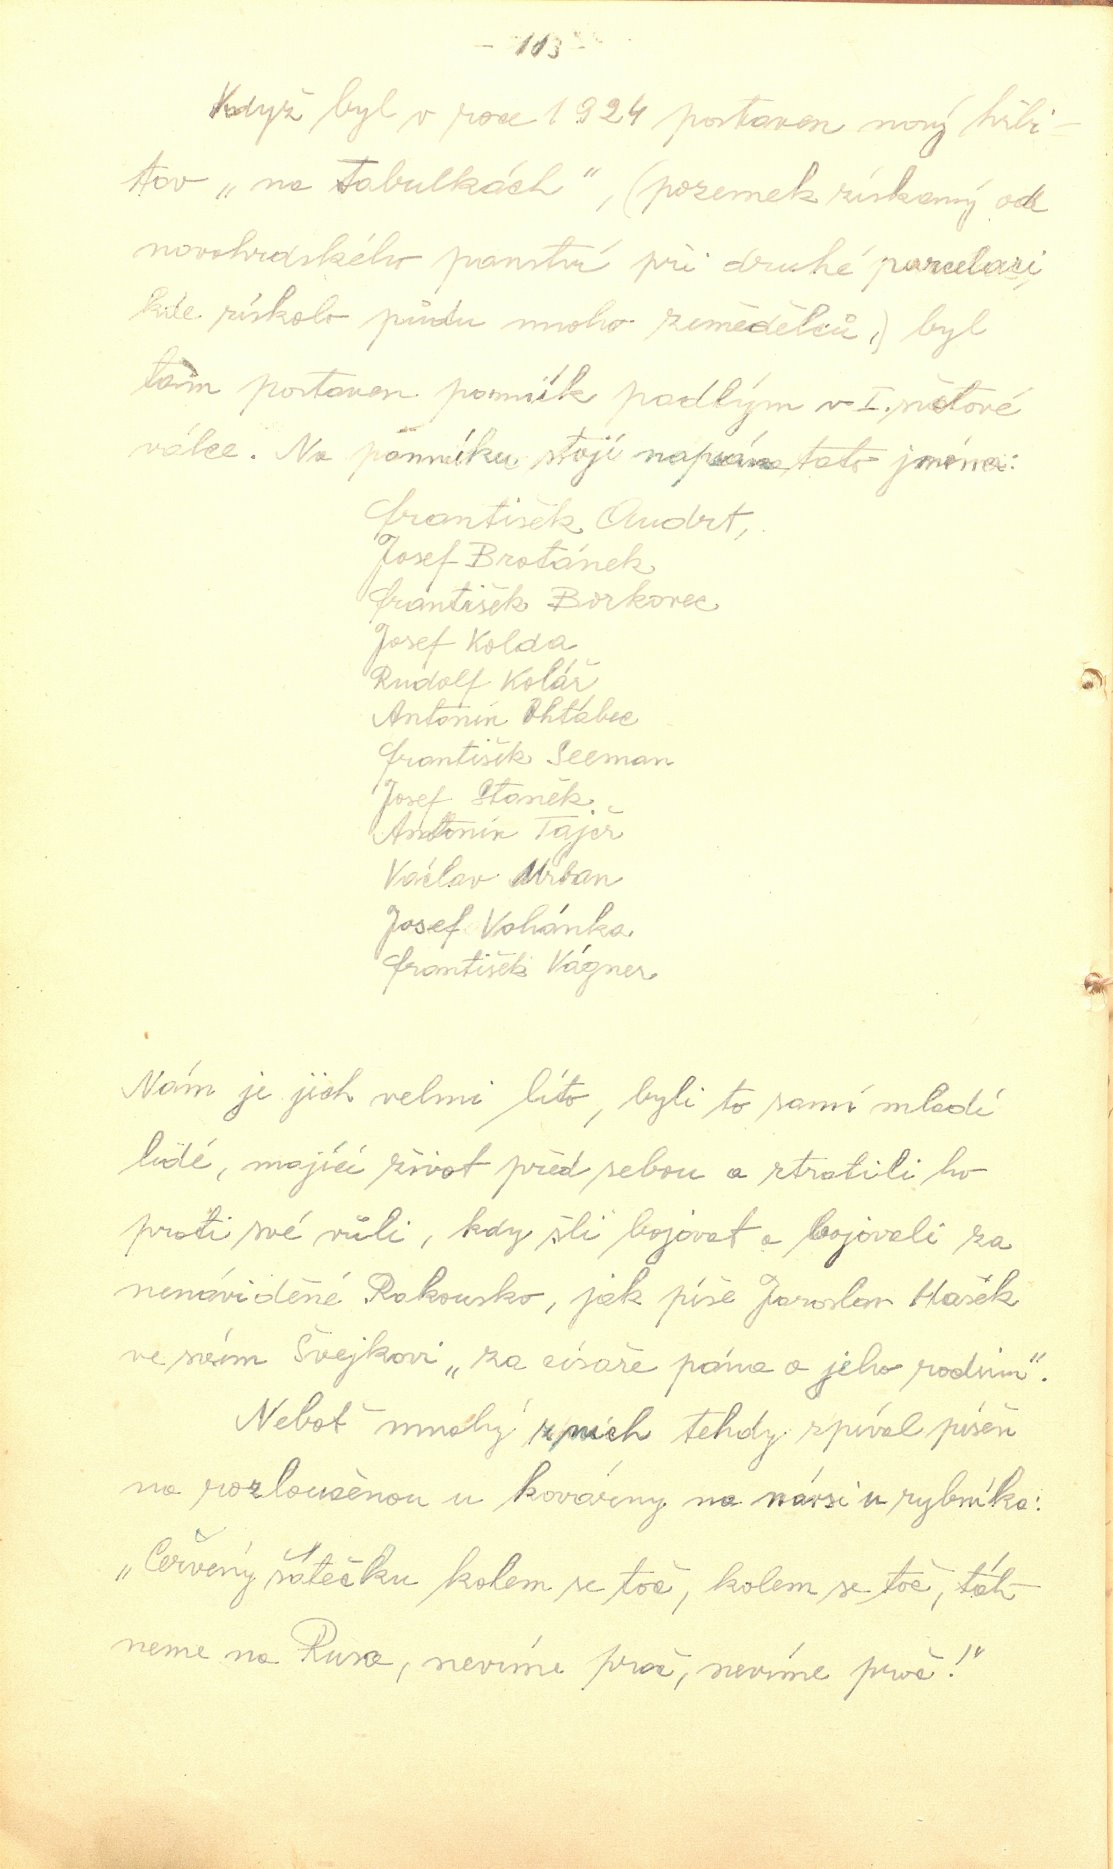 - 113 -
Když byl v roce 1924 postaven nový hřbi-
tov „na Tabulkách“, (pozemek získaný od
novohradského panství při druhé parcelaci,
kde získalo půdu mnoho zemědělců,) byl
tam postaven pomník padlým v I. světové
válce. Na pomníku stojí napsána tato jména:
František Audrt,
Josef Brotánek
František Borkovec
Josef Kolda
Rudolf Kolář
Antonín Ohtábec
František Seeman
Josef Staněk
Antonín Tajčr
Václav Urban
Josef Vohánka
František Vágner
Nám je jich velmi líto, byli to samí mladí
lidé, mající život před sebou a ztratili ho
proti své vůli, kdy šli bojovat a bojovali za
nenáviděné Rakousko, jak píše Jaroslav Hašek
ve svém Švejkovi „za císaře pána a jeho rodinu“.
Neboť mnohý z nich tehdy zpíval píseň
na rozloučenou u kovárny na návsi u rybníka:
„Červený šátečku kolem se toč, kolem se toč, táh-
neme na Rusa, nevíme proč, nevíme proč!“